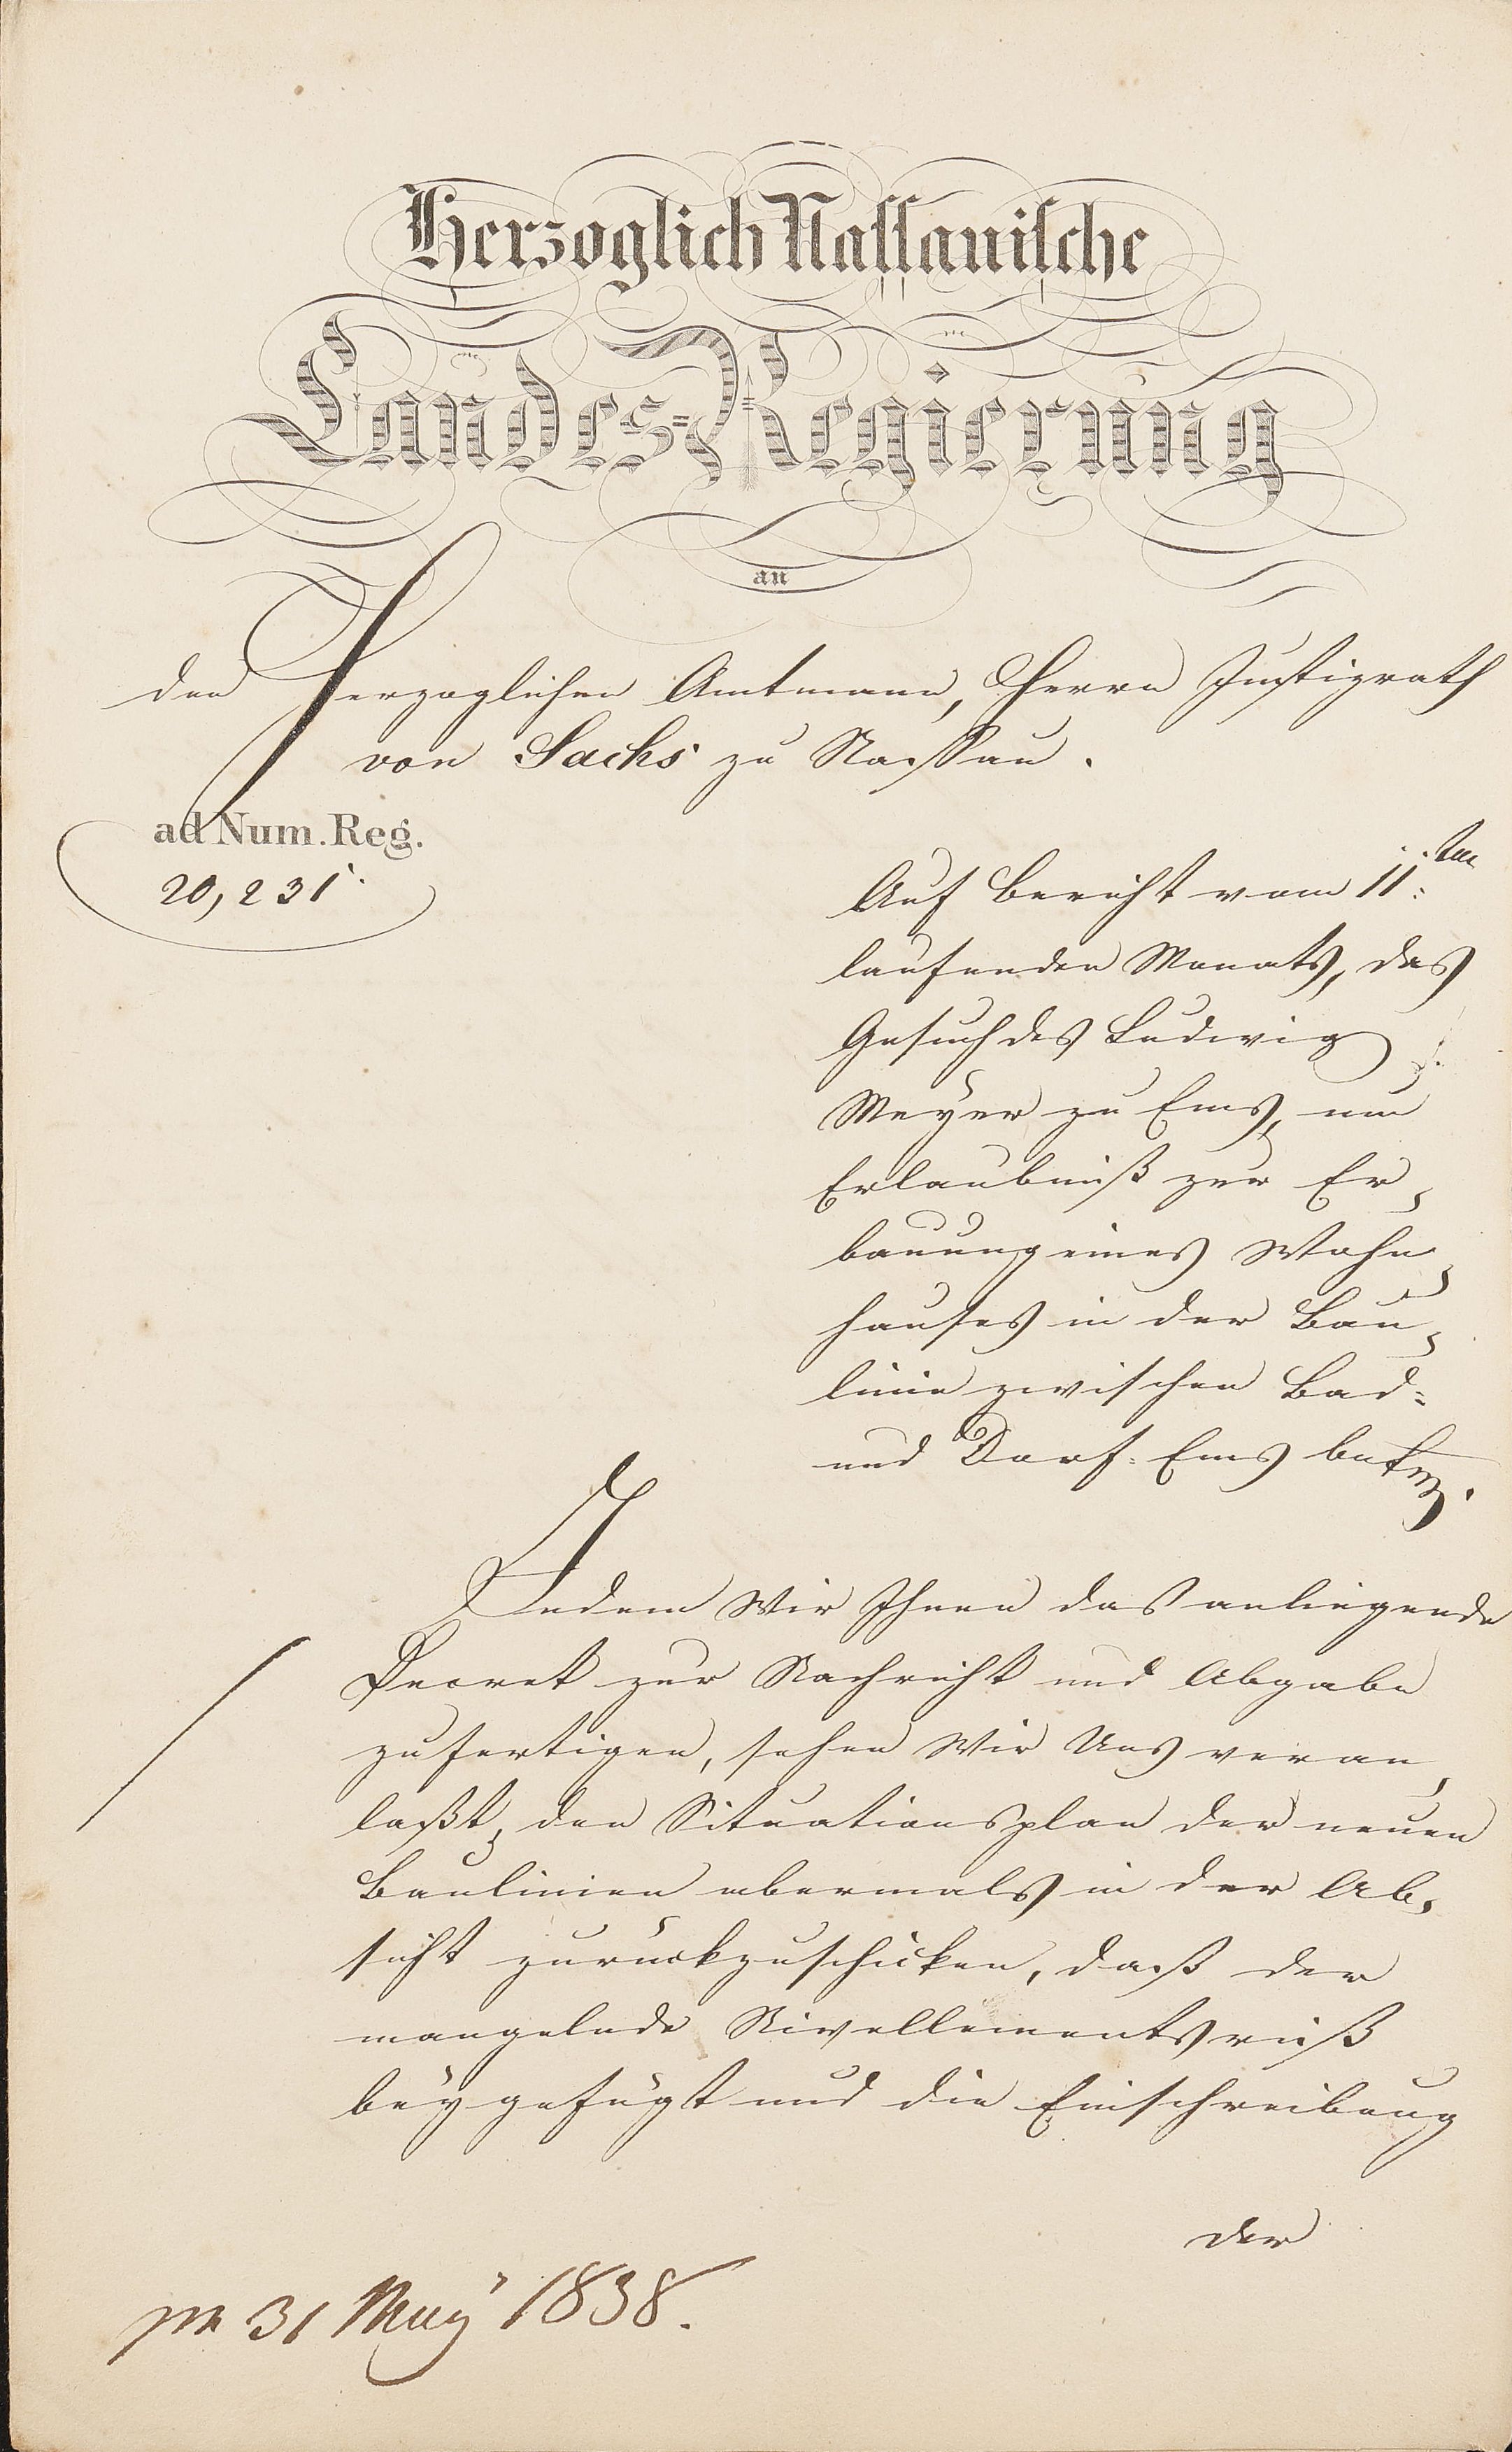 Herzoglich Nassauische
Landes-Regierung
an
den Herzoglichen Amtmann, Herrn Justizrath
von Sachs zu Nassau.
ad Num. Reg.
20,231.
Auf Bericht vom 11ten
laufenden Monats, das
Gesuch des Ludwig
Meyer zu Ems, um
Erlaubniß zur Er-
bauung eines Wohn-
hauses in der Bau-
linie zwischen Bad-
und Dorf-Ems betr.
Indem Wir Ihnen das anliegende
Decret zur Nachricht und Abgabe
zufertigen, sehen Wir Uns veran-
laßt, den Situationsplan der neuen
Baulinien abermals in der Ab-
sicht zurückzuschicken, daß der
mangelnde Nivellementsriß
beygefügt und die Einschreibung
der
pr 31 May 1838.